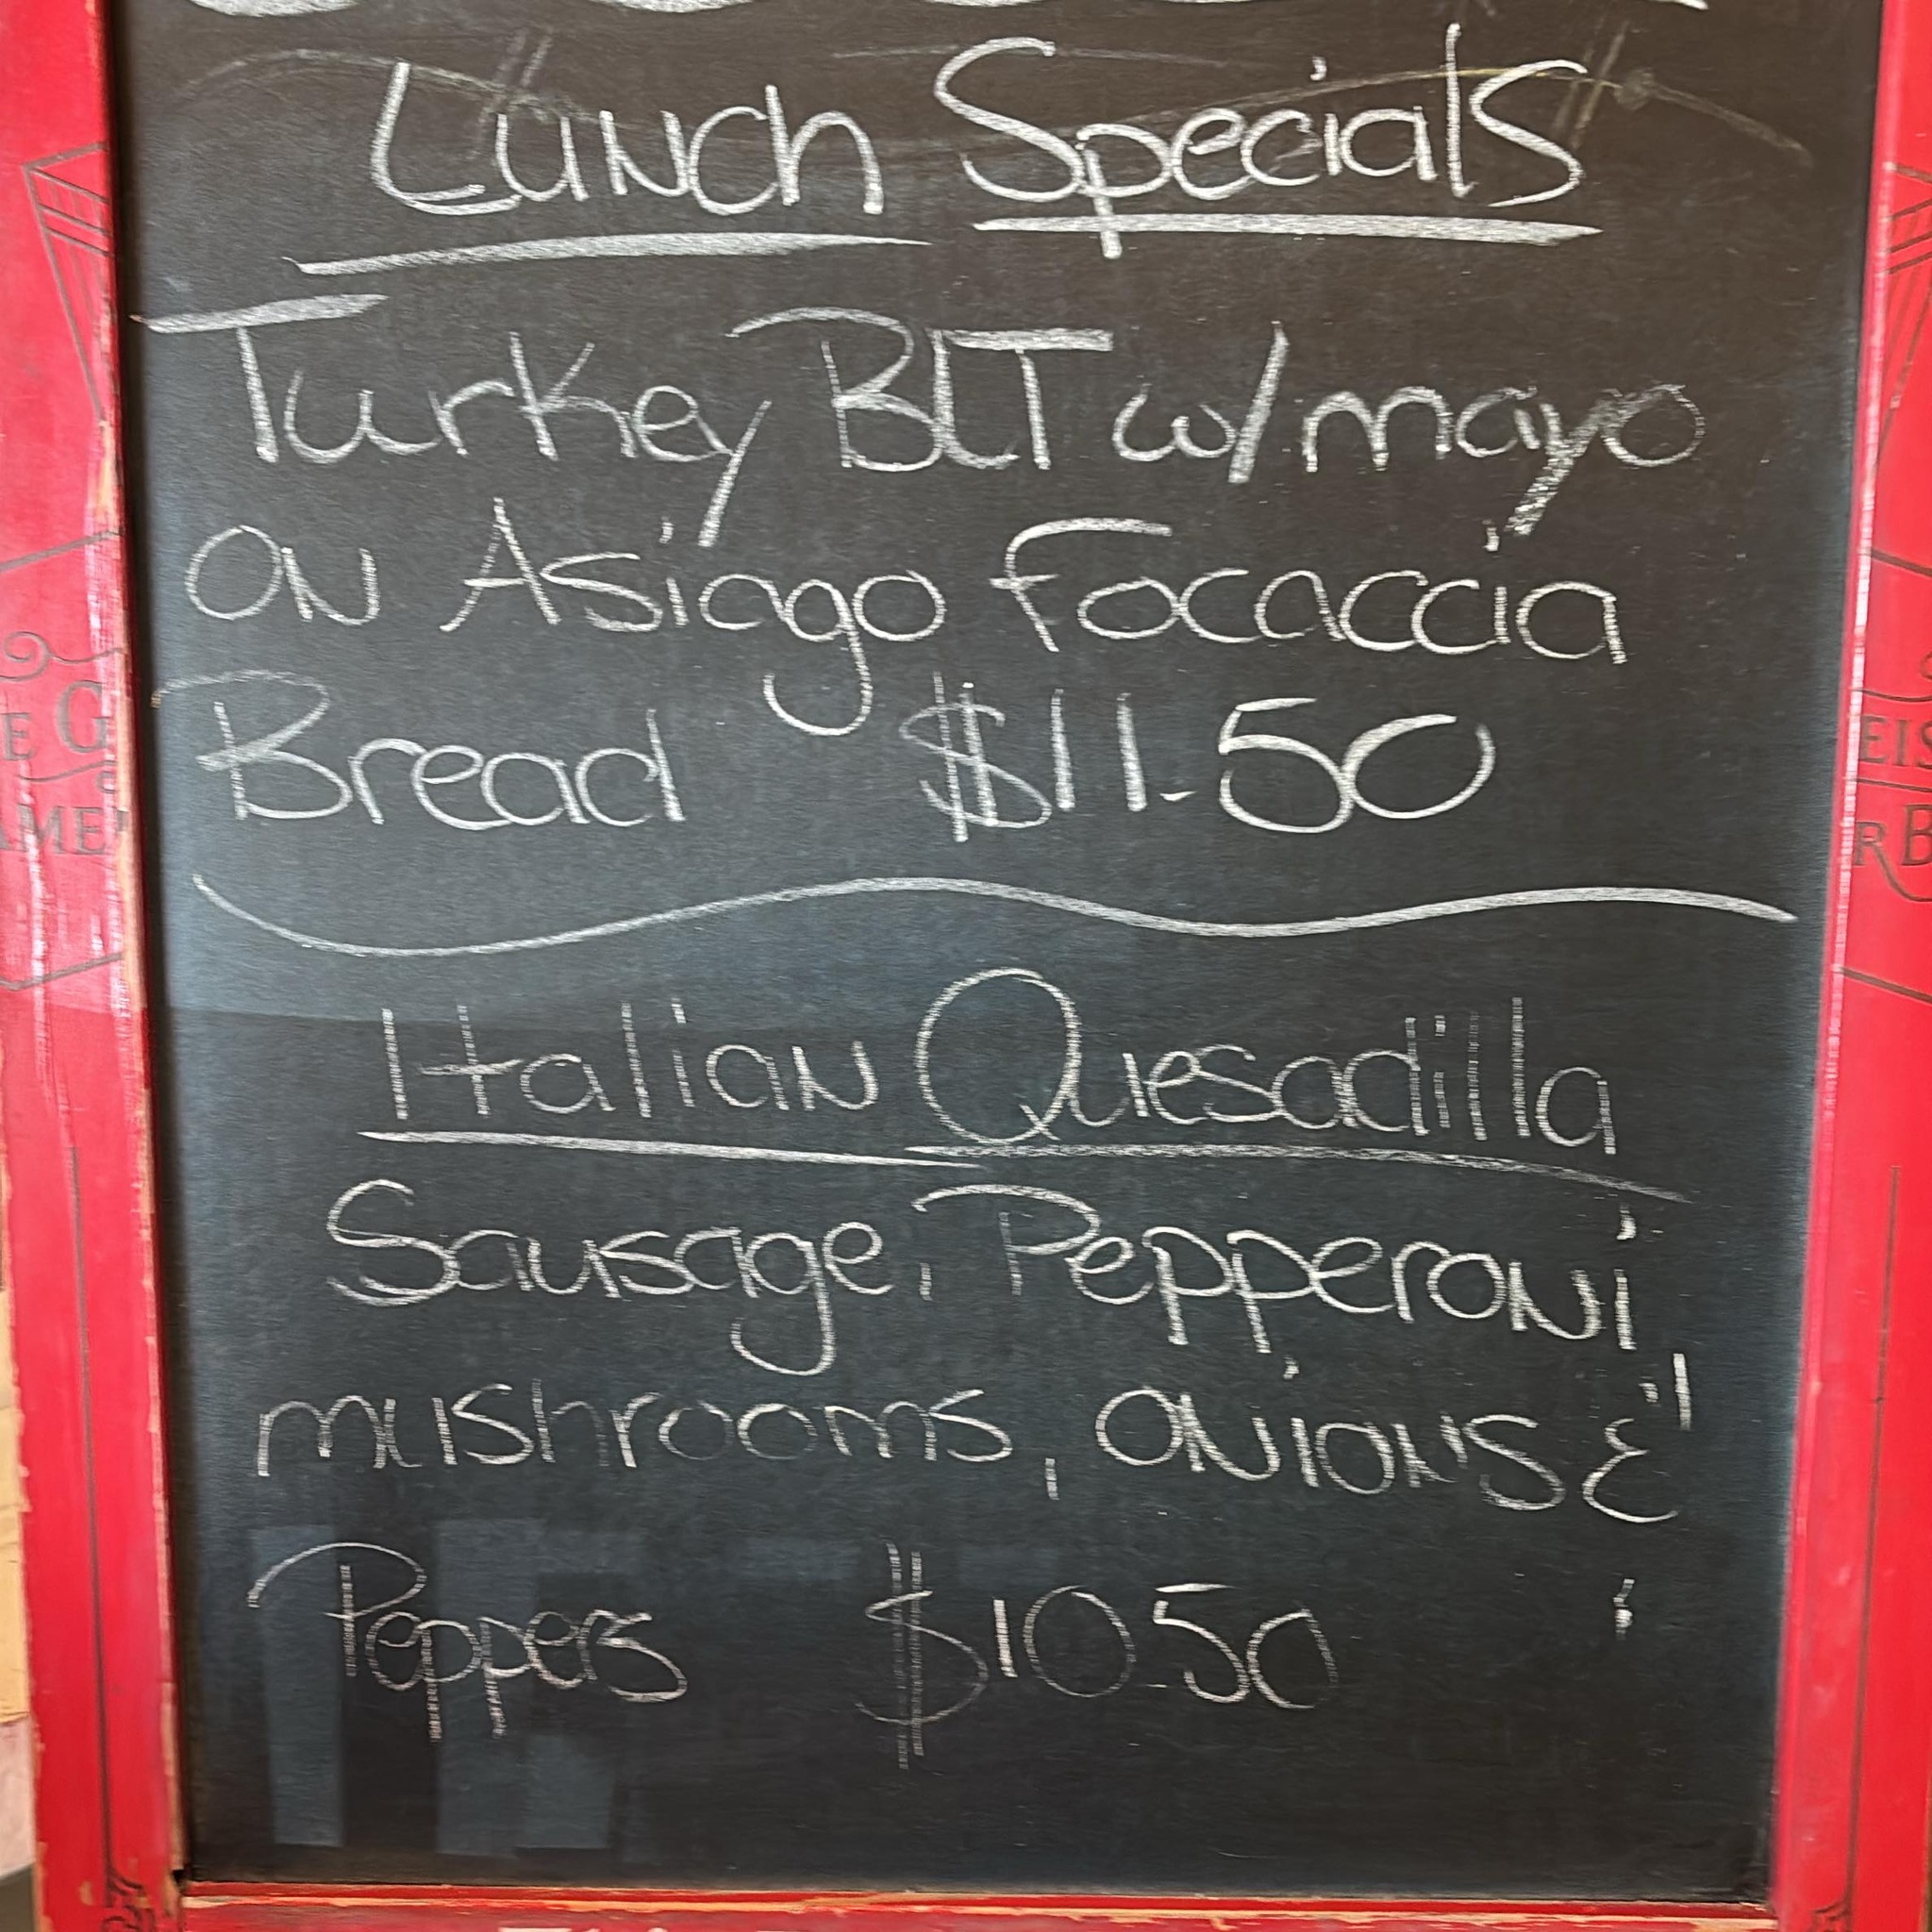 Lunch Specials
Turkey BLT w/mayo
ON Asiago Focaccia
Bread $11.50
Italian Quesadilla
Sausage, Pepperoni
mushrooms, onions &
Peppers $10.50